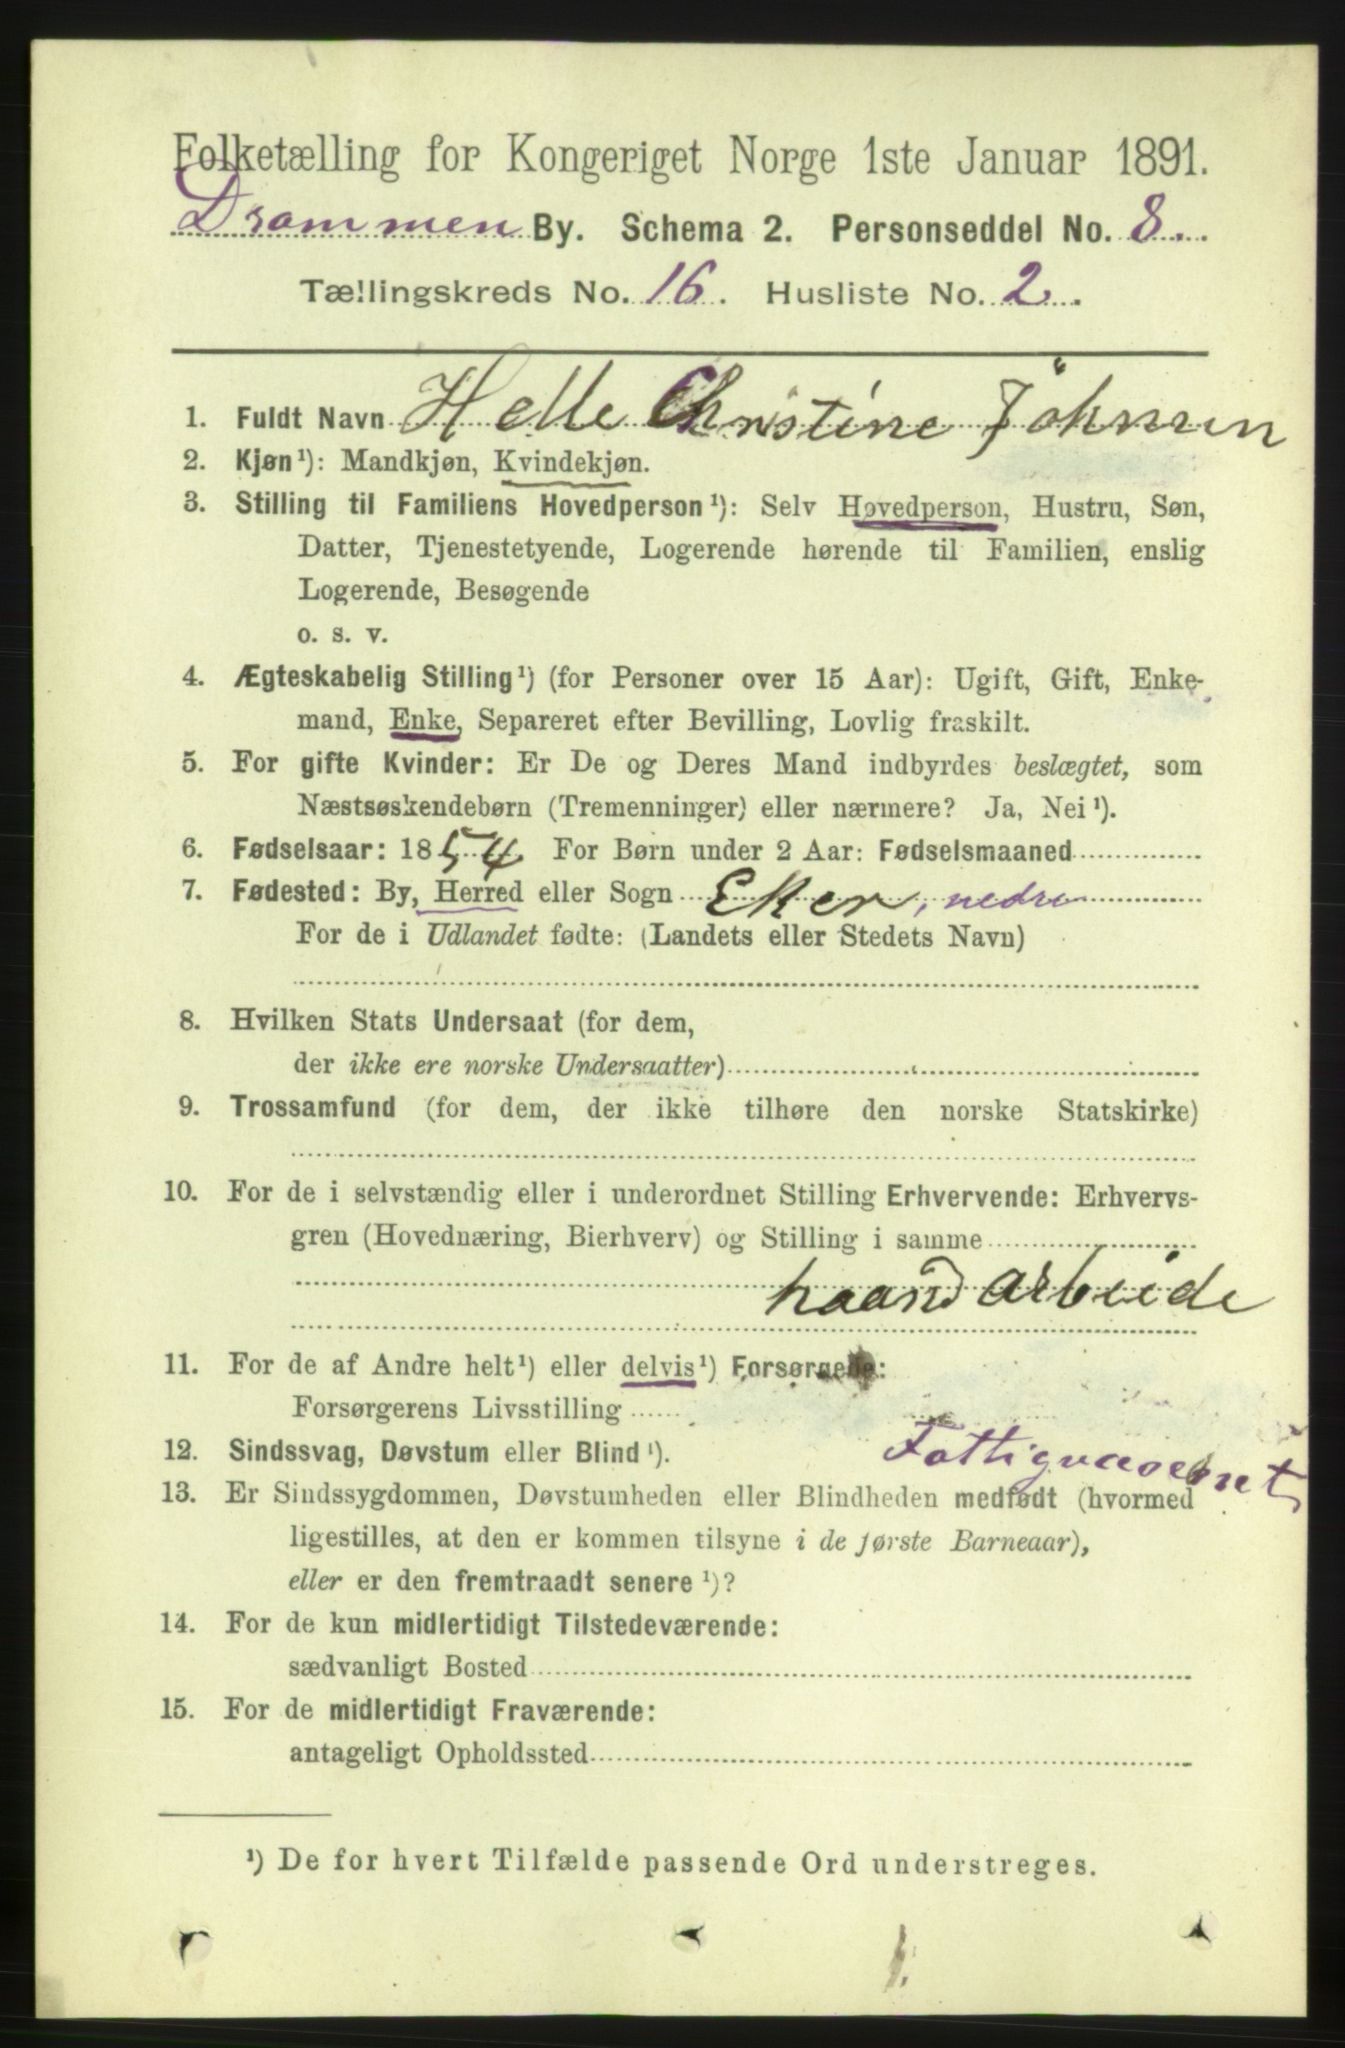 Folketælling for Kongeriget Norge 1ste Januar 1891.
Drammen By. Schema 2. Personseddel No. 8.
Tællingskreds No. 16. Husliste No. 2.
1. Fuldt Navn Helle Christine Johnsen
2. Kjøn¹): Mandkjøn, Kvindekjøn.
3. Stilling til Familiens Hovedperson¹): Selv Hovedperson, Hustru, Søn,
Datter, Tjenestetyende, Logerende hørende til Familien, enslig
Logerende, Besøgende
o. s. v.
4. Ægteskabelig Stilling¹) (for Personer over 15 Aar): Ugift, Gift, Enke-
mand, Enke, Separeret efter Bevilling, Lovlig fraskilt.
5. For gifte Kvinder: Er De og Deres Mand indbyrdes beslægtet, som
Næstsøskendebørn (Tremenninger) eller nærmere? Ja, Nei¹).
6. Fødselsaar: 1854 For Børn under 2 Aar: Fødselsmaaned
7. Fødested: By, Herred eller Sogn Eker, nedre
For de i Udlandet fødte: (Landets eller Stedets Navn)
8. Hvilken Stats Undersaat (for dem,
der ikke ere norske Undersaatter)
9. Trossamfund (for dem, der ikke tilhøre den norske Statskirke)
10. For de i selvstændig eller i underordnet Stilling Erhvervende: Erhvervs-
gren (Hovednæring, Bierhverv) og Stilling i samme
haand arbeide
11. For de af Andre helt¹) eller delvis¹) Forsørgede:
Forsørgerens Livsstilling
Fattigvæsenet
12. Sindssvag, Døvstum eller Blind¹).
13. Er Sindssygdommen, Døvstumheden eller Blindheden medfødt (hvormed
ligestilles, at den er kommen tilsyne i de første Barneaar),
eller er den fremtraadt senere¹)?
14. For de kun midlertidigt Tilstedeværende:
sædvanligt Bosted
15. For de midlertidigt Fraværende:
antageligt Opholdssted
¹) De for hvert Tilfælde passende Ord understreges.